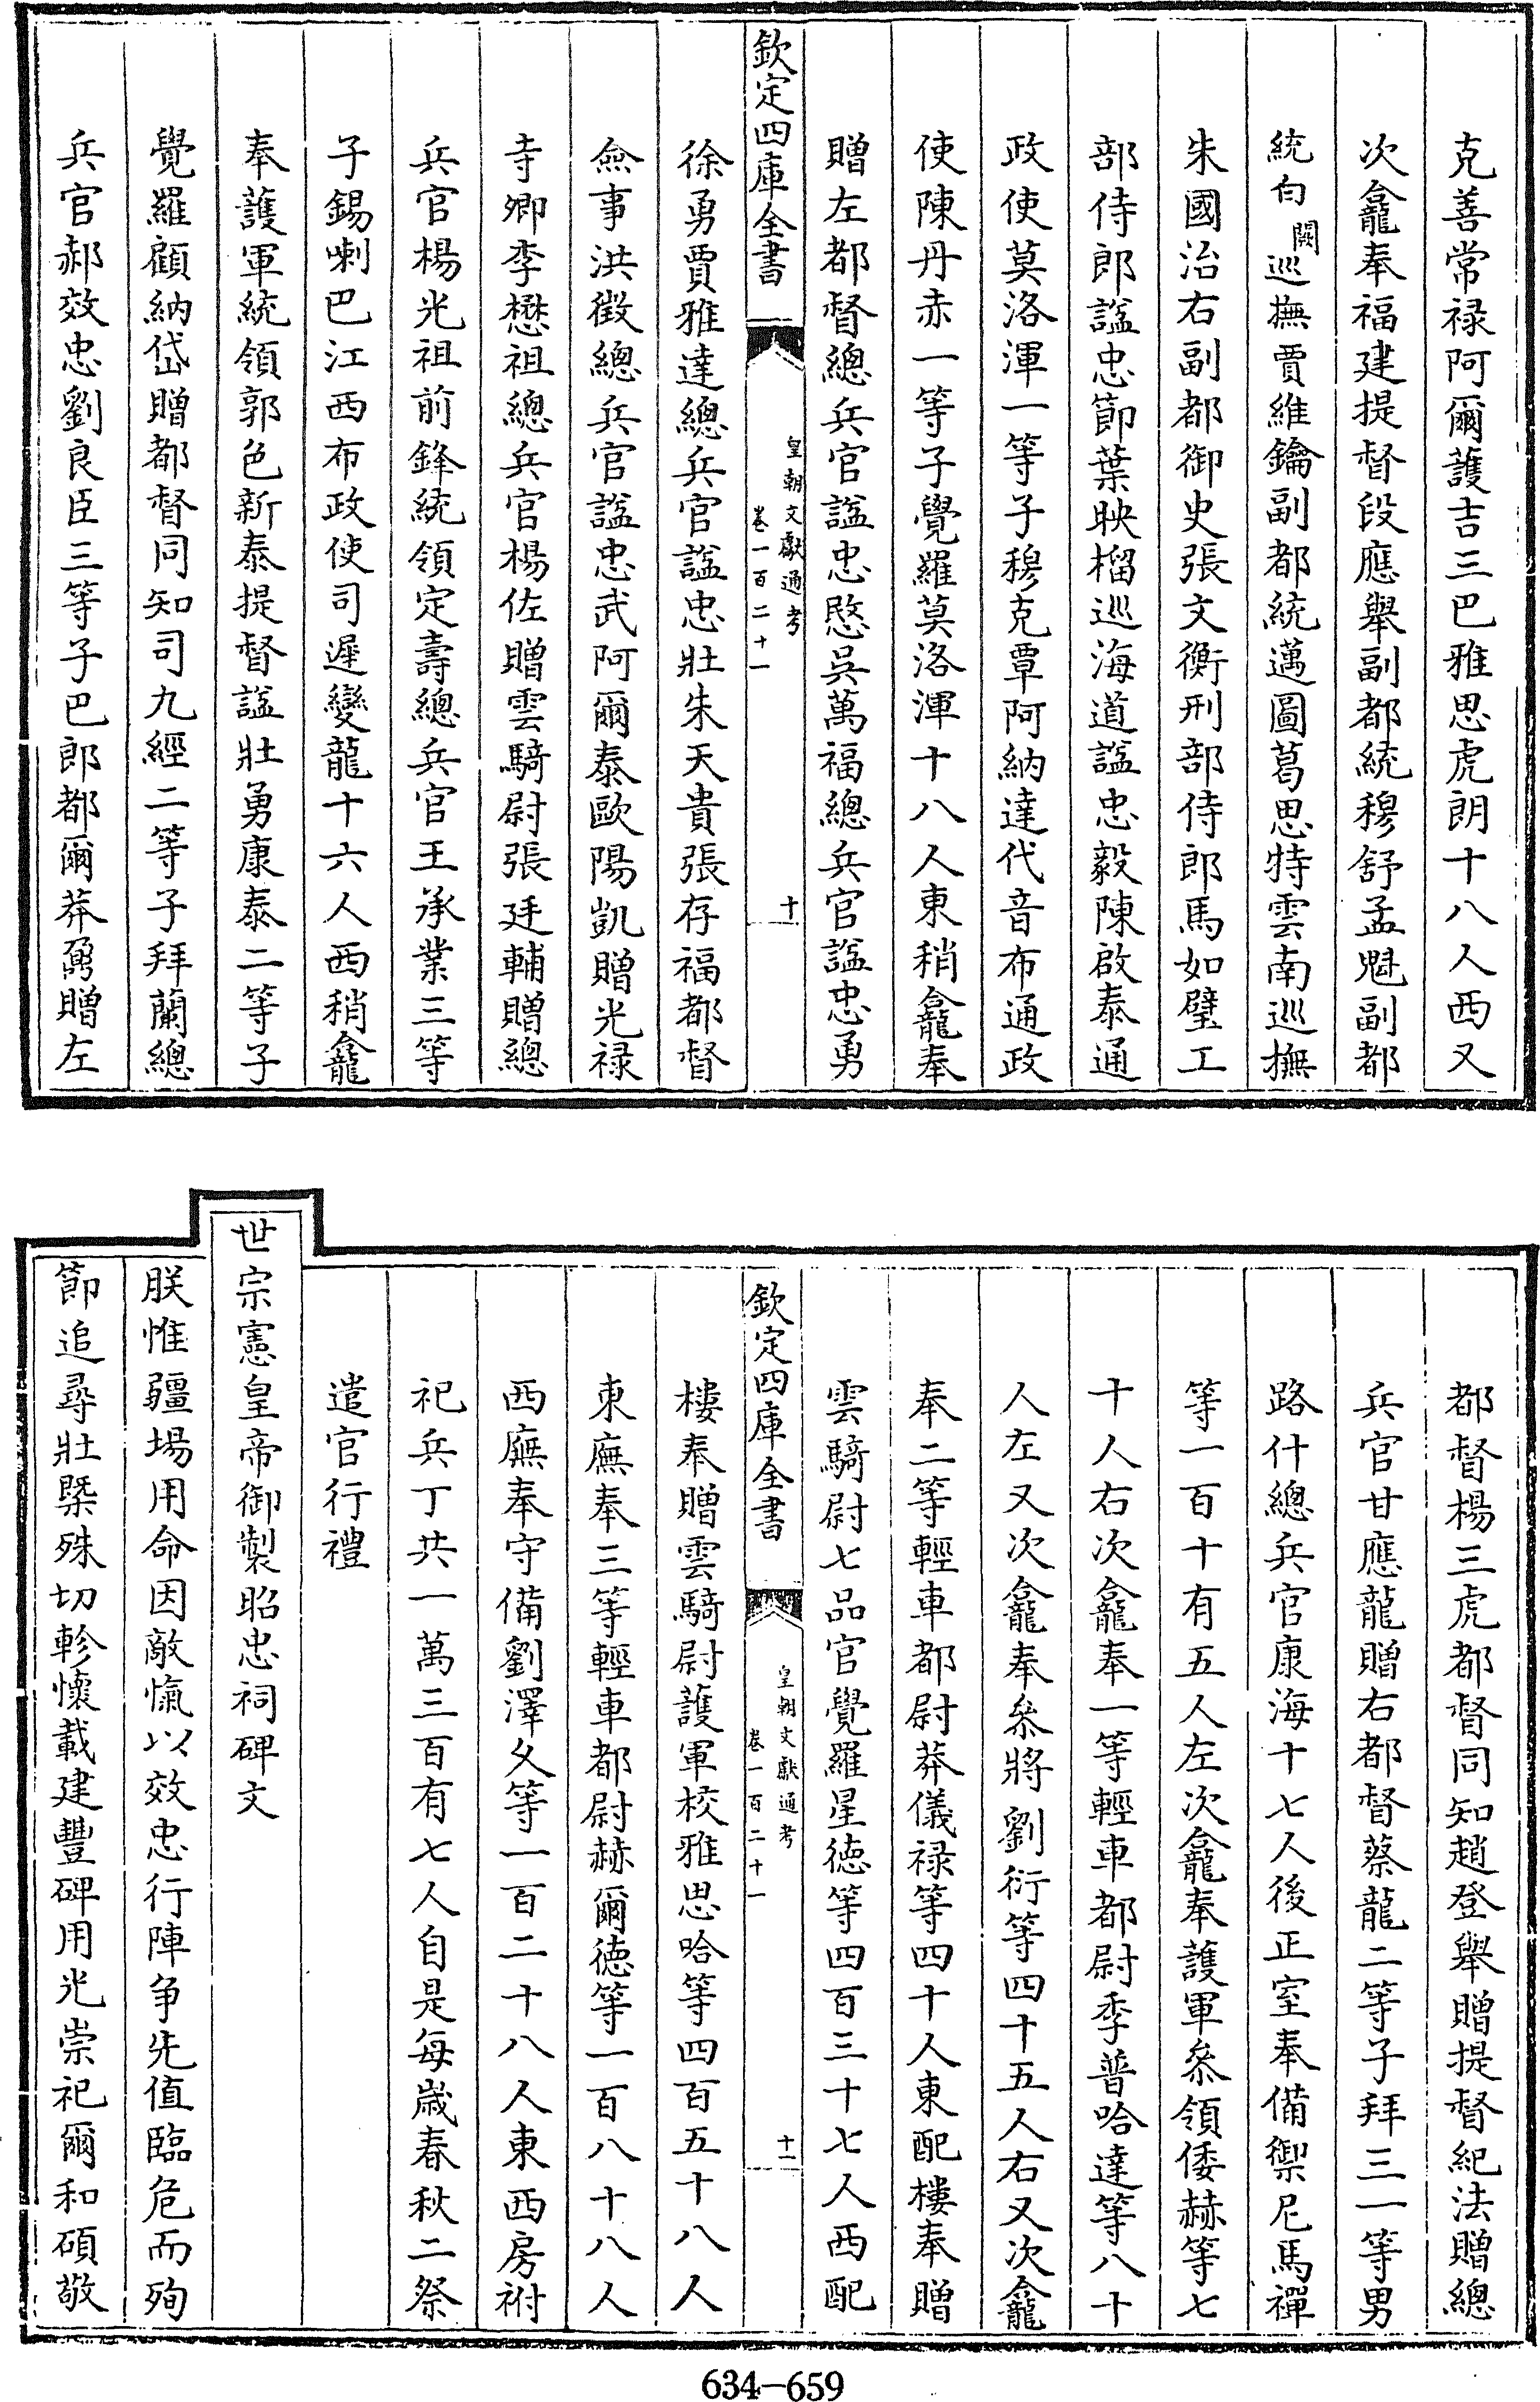 克善常禄阿爾護吉三巴雅思虎朗十八人西又
次龕奉福建提督段應舉副都統穆舒孟魁副都
統白闕巡撫賈維鑰副都統邁圖葛思特雲南巡撫
朱國治右副都御史張文衡刑部侍郎馬如璧工
部侍郎諡忠節葉映榴巡海道諡忠毅陳啟泰通
政使莫洛渾一等子穆克覃阿納達代音布通政
使陳丹赤一等子覺羅莫洛渾十八人東稍龕奉
贈左都督總兵官諡忠愍吳萬福總兵官諡忠勇
欽定四庫全書
皇朝文獻通考
卷一百二十一
十
徐勇賈雅達總兵官諡忠壯朱天貴張存福都督
僉事洪徵總兵官諡忠武阿爾泰歐陽凱贈光禄
寺卿李懋祖總兵官楊佐贈雲騎尉張廷輔贈總
兵官楊光祖前鋒統領定壽總兵官王承業三等
子錫喇巴江西布政使司遲變龍十六人西稍龕
奉護軍統領郭色新泰提督諡壯勇康泰二等子
覺羅顧納岱贈都督同知司九經二等子拜蘭總
兵官郝效忠劉良臣三等子巴郎都爾莽鼐贈左
都督楊三虎都督同知趙登舉贈提督紀法贈總
兵官甘應龍贈右都督蔡龍二等子拜三一等男
路什總兵官康海十七人後正室奉備禦尼馬禪
等一百十有五人左次龕奉護軍叅領倭赫等七
十人右次龕奉一等輕車都尉季普哈達等八十
人左又次龕奉叅將劉衍等四十五人右又次龕
奉二等輕車都尉莽儀禄等四十人東配樓奉贈
雲騎尉七品官覺羅星德等四百三十七人西配
欽定四庫全書
皇朝文獻通考
卷一百二十一
十一
樓奉贈雲騎尉護軍校雅思哈等四百五十八人
東廡奉三等輕車都尉赫爾德等一百八十八人
西廡奉守備劉澤久等一百二十八人東西房祔
祀兵丁共一萬三百有七人自是每歲春秋二祭
遣官行禮
世宗憲皇帝御製昭忠祠碑文
朕惟疆場用命因敵愾以效忠行陣争先值臨危而殉
節追尋壯槩殊切軫懷載建豐碑用光崇祀爾和碩敬
634-659